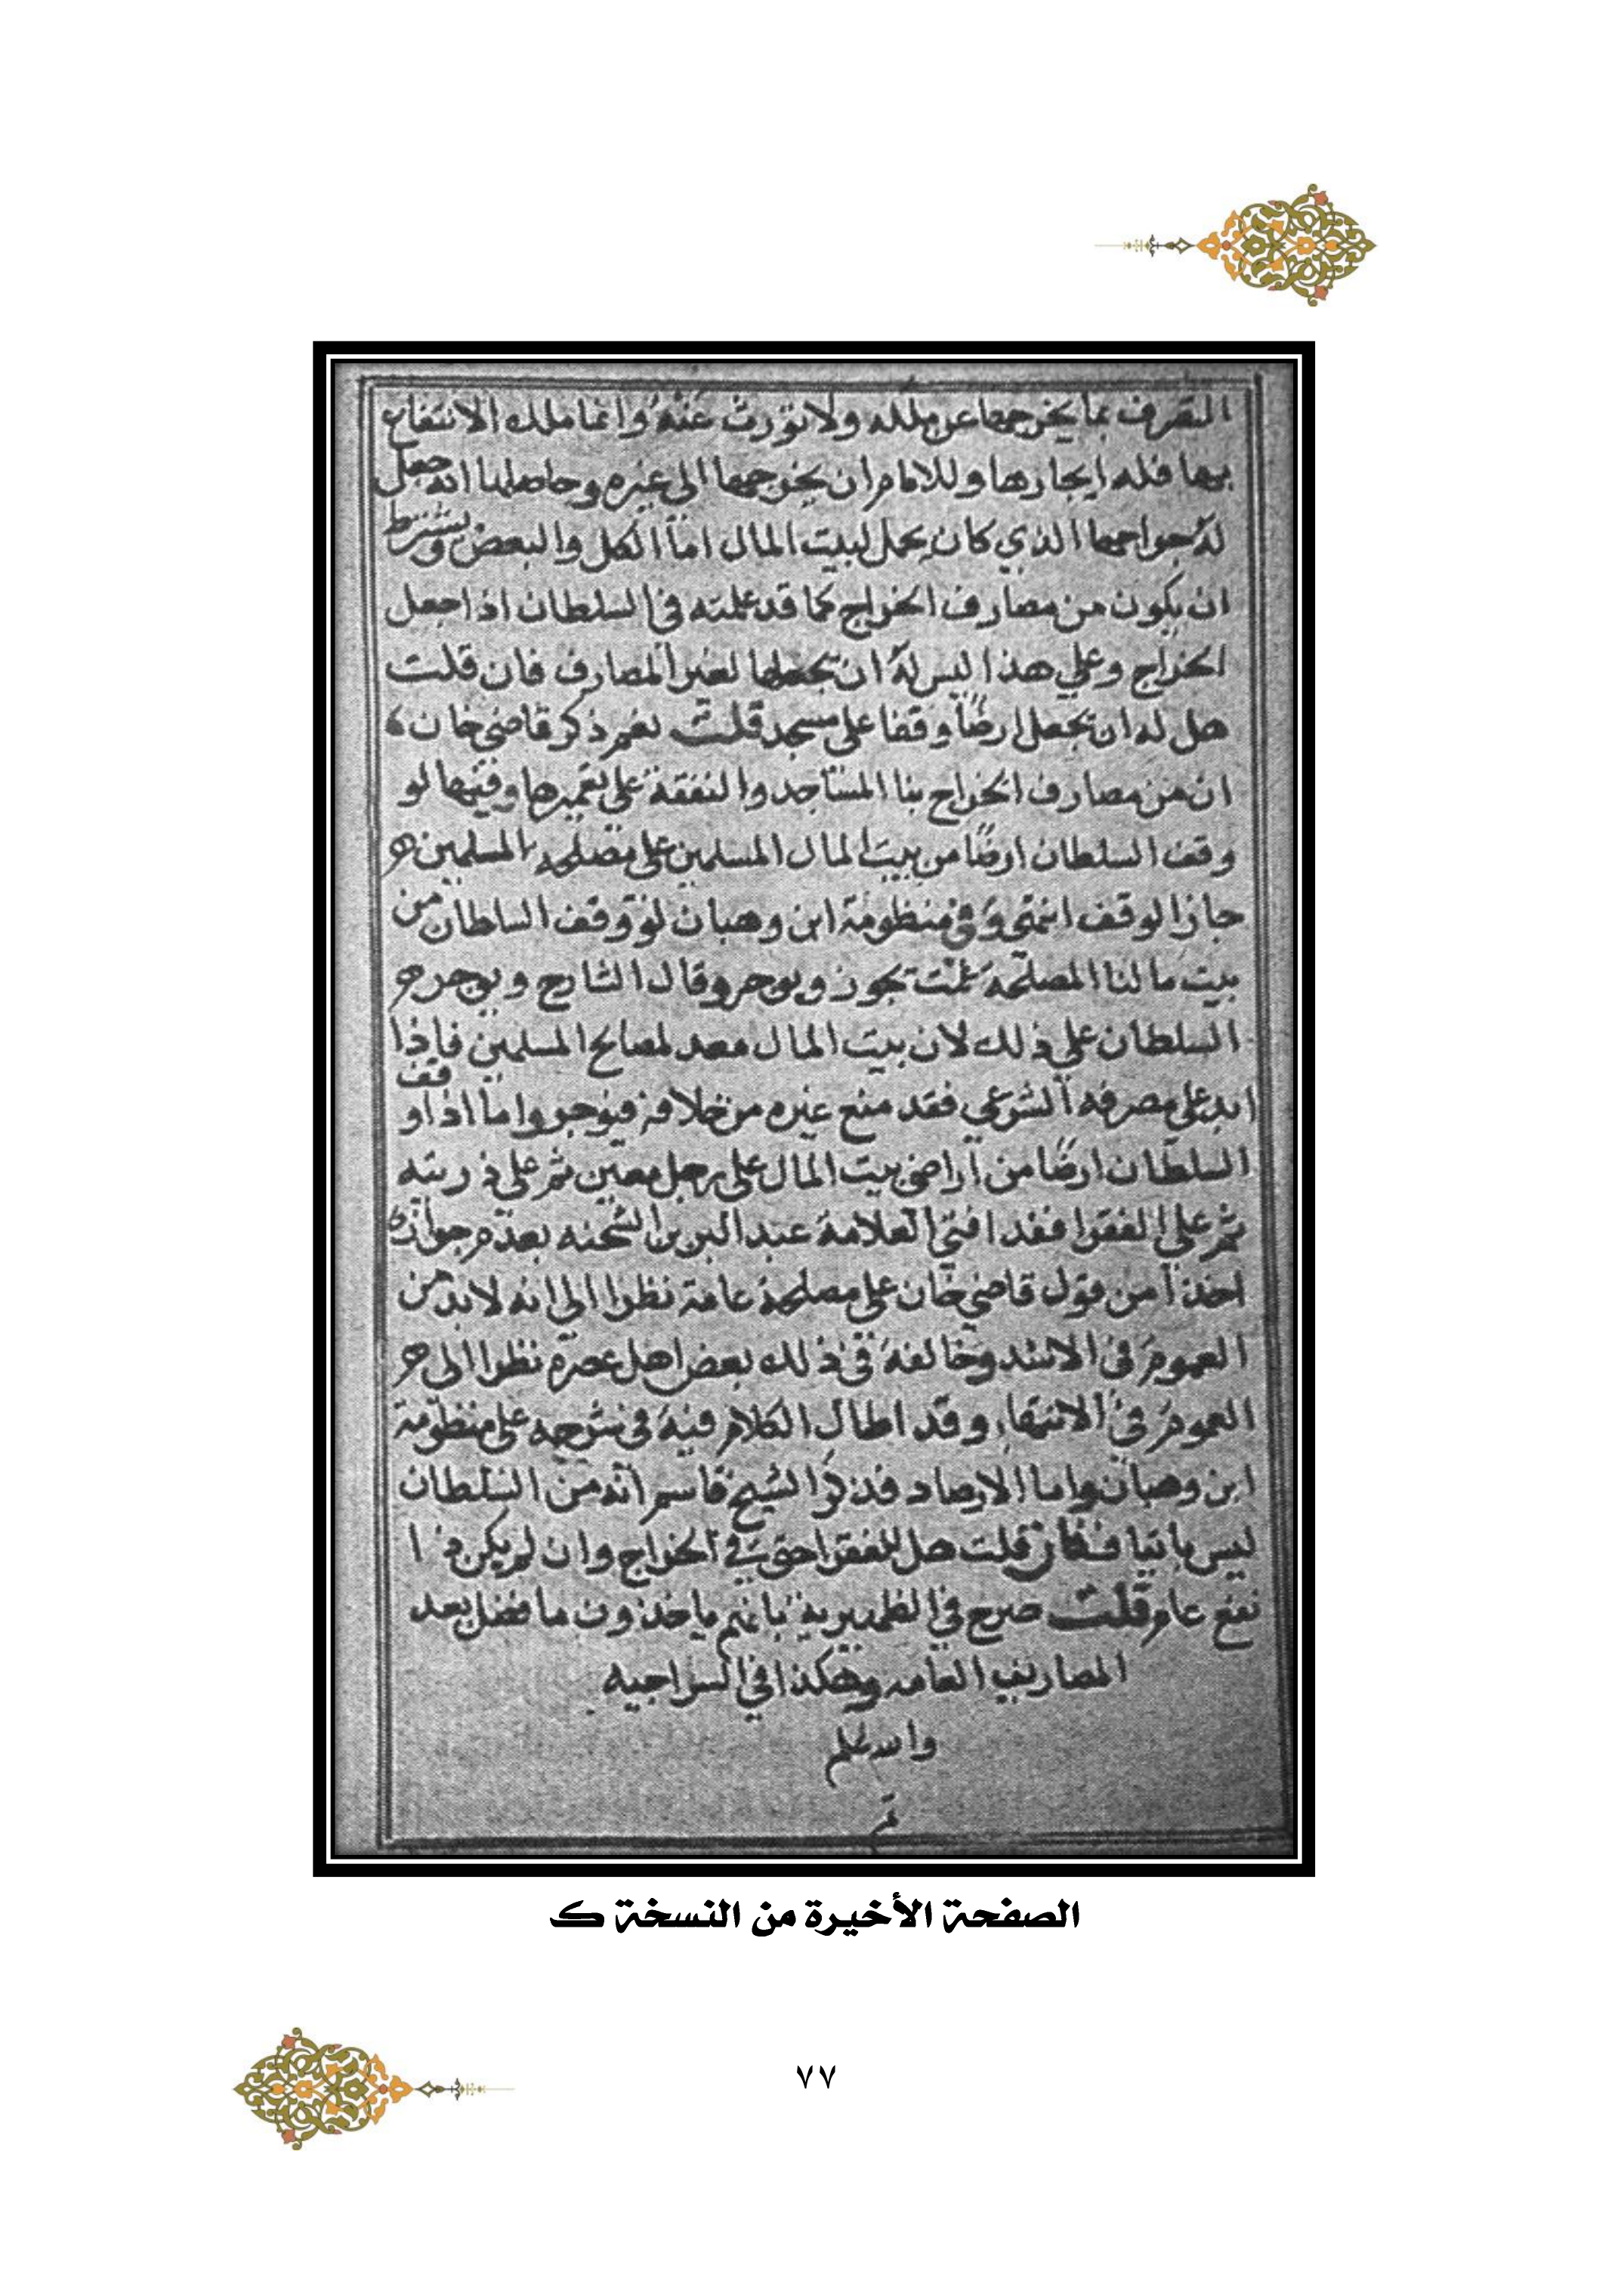 التصرف بما يخرجها عن ملكه ولا تورث عنه وانما ملك الانتفاع
بها فله ايجارها وللامام ان يخرجها الى غيره وحاصلها انه جعل
له خراجها الذي كان يحمل لبيت المال اما الكل والبعض ويشترط
ان يكون من مصارف الخراج كما قد علمته في السلطان اذا جعل
الخراج وعلي هذا ليس له ان يجعلها لغير المصارف فان قلت
هل له ان يجعل ارضا وقفا على مسجد قلت نعم ذكر قاضي خان
ان من مصارف الخراج بنا المساجد والنفقة على تعميرها وفيها لو
وقف السلطان ارضا من بيت المال المسلمين على مصلحة المسلمين
جاز الوقف انتهى وفي منظومة ابن وهبان لو وقف السلطان من
بيت مالنا لمصلحة عمت يجوز ويوجر وقال الشارح ويوجر
السلطان علي ذلك لان بيت المال معد لمصالح المسلمين فاذا
ابد على مصرفه الشرعي فقد منع غيره من خلافه فيوجر واما اذا وقف
السلطان ارضا من اراضي بيت المال على رجل معين ثم على ذريته
ثم علي الفقرا فقد افتي العلامة عبد البر بن الشحنه بعدم جوازه
اخذا من قول قاضي خان على مصلحة عامة نظرا الى انه لابد من
العموم في الابتد وخالفه في ذلك بعض اهل عصره نظرا الى
العموم في الانتها وقد اطال الكلام فيه في شرحه على منظومة
ابن وهبان واما الارصاد فذكر الشيخ قاسم انه من السلطان
ليس فان قلت هل للفقرا حق في الخراج وان لم يكن ذا
نفع عام قلت صرح في الظهيرية بانهم ياخذون ما فضل بعد
المصاريف العامه وهكذا في السراجيه
والله اعلم
تم
الصفحة الأخيرة من النسخة ك
٧٧